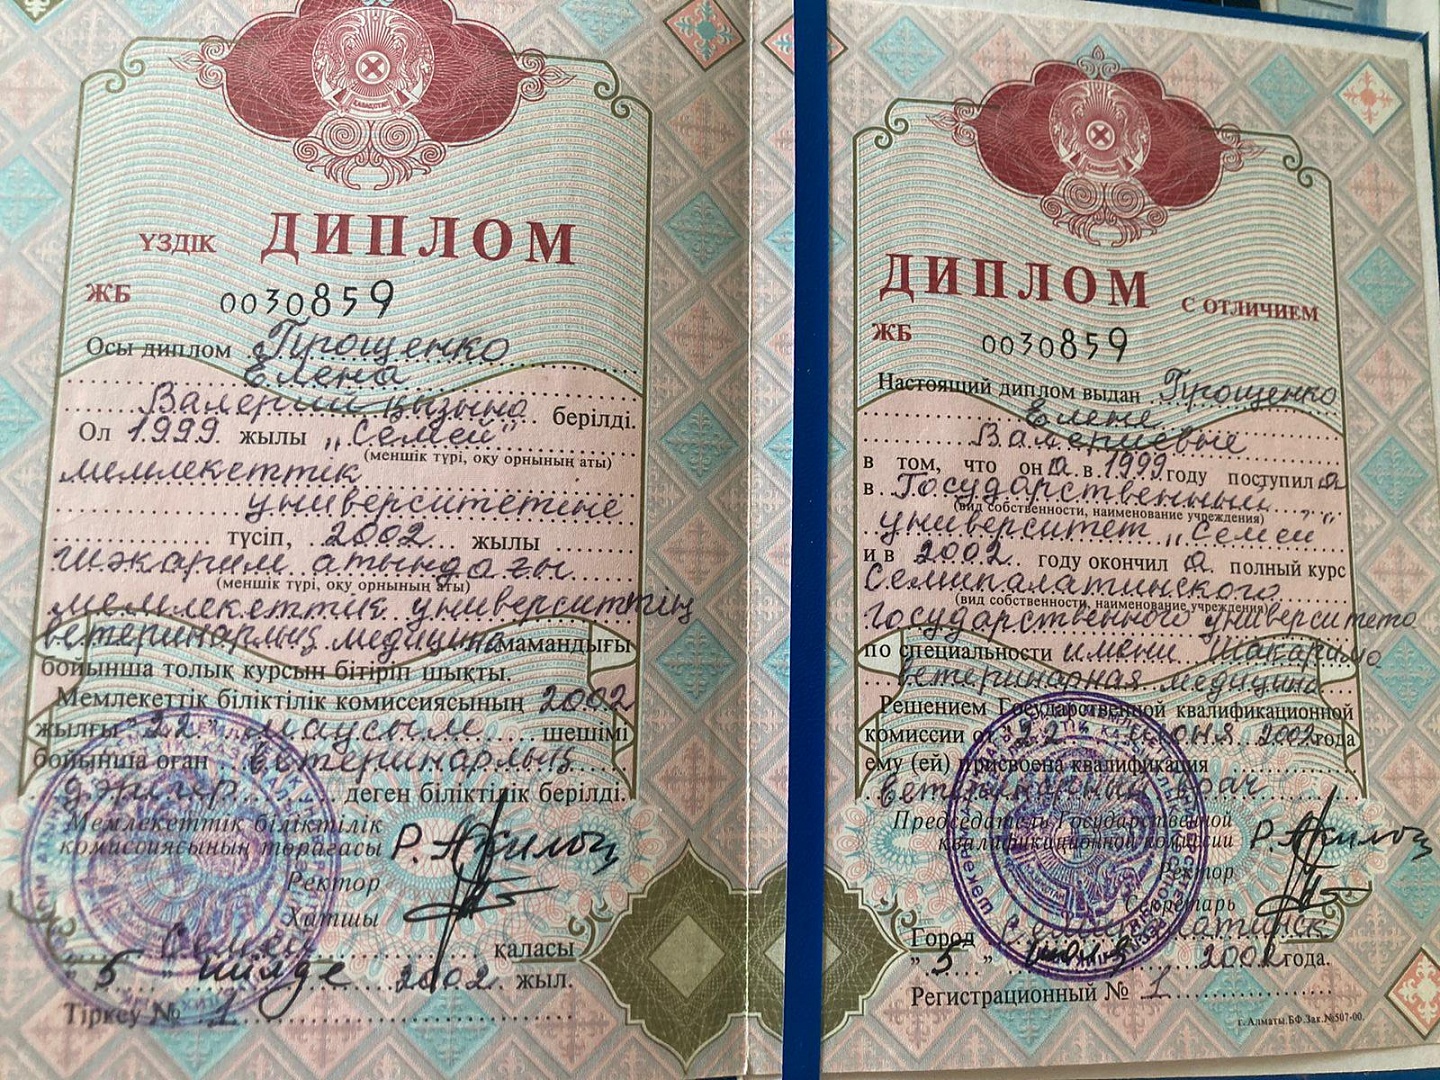 ҮЗДІК ДИПЛОМ
ЖБ 0030859
Осы диплом Прощенко
Елена
Валерий қызына берілді.
Ол 1999 жылы „Семей"
(меншік түрі, оқу орнының аты)
мемлекеттік
университетіне
түсіп, 2002 жылы
Шәкарим атындағы
(меншік түрі, оқу орнының аты)
мемлекеттік университтің
ветеринарлық медицина мамандығы
бойынша толық курсын бітіріп шықты.
Мемлекеттік біліктілік комиссиясының 2002
жылғы "22" маусым шешімі
бойынша оған ветеринарлық
дәрігер деген біліктілік берілді.
Мемлекеттік біліктілік
комиссиясының төрағасы
Ректор
Хатшы
Семей қаласы
" 5 " шілде 2002 жыл.
Тіркеу № 1
ДИПЛОМ С ОТЛИЧИЕМ
ЖБ 0030859
Настоящий диплом выдан Прощенко
Елене
Валериевые
в том, что она в 1999 году поступила
в Государственный
(вид собственности, наименование учреждения)
университет „Семей"
и в 2002 году окончила полный курс
Семипалатинского
(вид собственности, наименование учреждения)
государственного университета
по специальности имени Шакарима
ветеринарная медицина
Решением Государственной квалификационной
комиссии от 22 июня 2002 года
ему (ей) присвоена квалификация
ветеринарный врач
Председатель Государственной
квалификационной комиссии
Ректор
Секретарь
Город Семипалатинск
" 5 " июля 2002 года.
Регистрационный № 1
г.Алматы.БФ.Зак.№507-00.